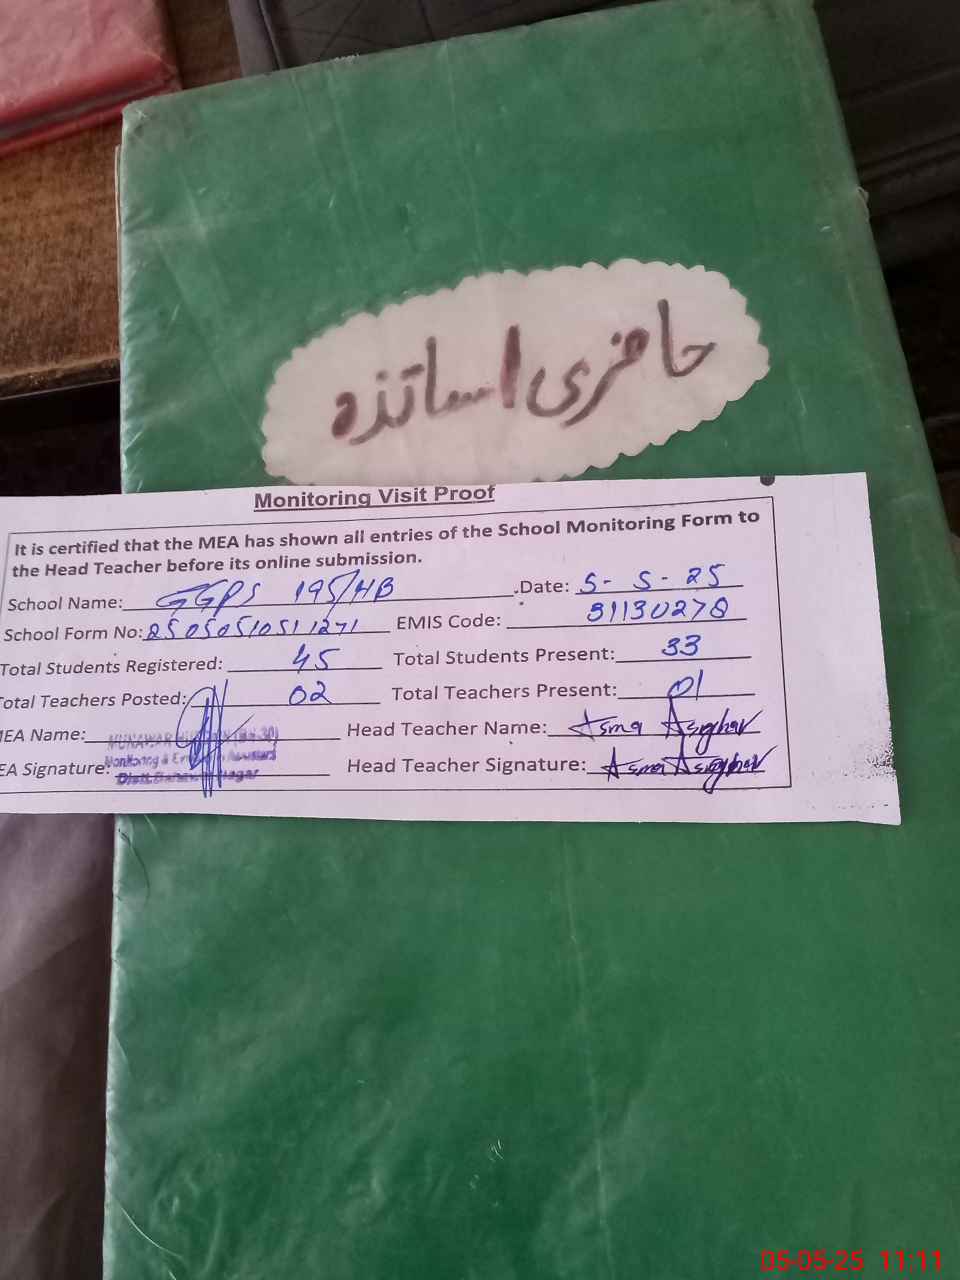 حاضری اساتذہ
Monitoring Visit Proof
It is certified that the MEA has shown all entries of the School Monitoring Form to
the Head Teacher before its online submission.
School Name: GGPS 195/HB .Date: 5-5-25
School Form No: 25050510511271 EMIS Code: 31130278
Total Students Registered: 45 Total Students Present: 33
Total Teachers Posted: 02 Total Teachers Present: 01
MEA Name: MUNAWAR Head Teacher Name: Asma Asghar
EA Signature: Head Teacher Signature: Asma Asghar
Monitoring &
Distt.
05-05-25 11:11